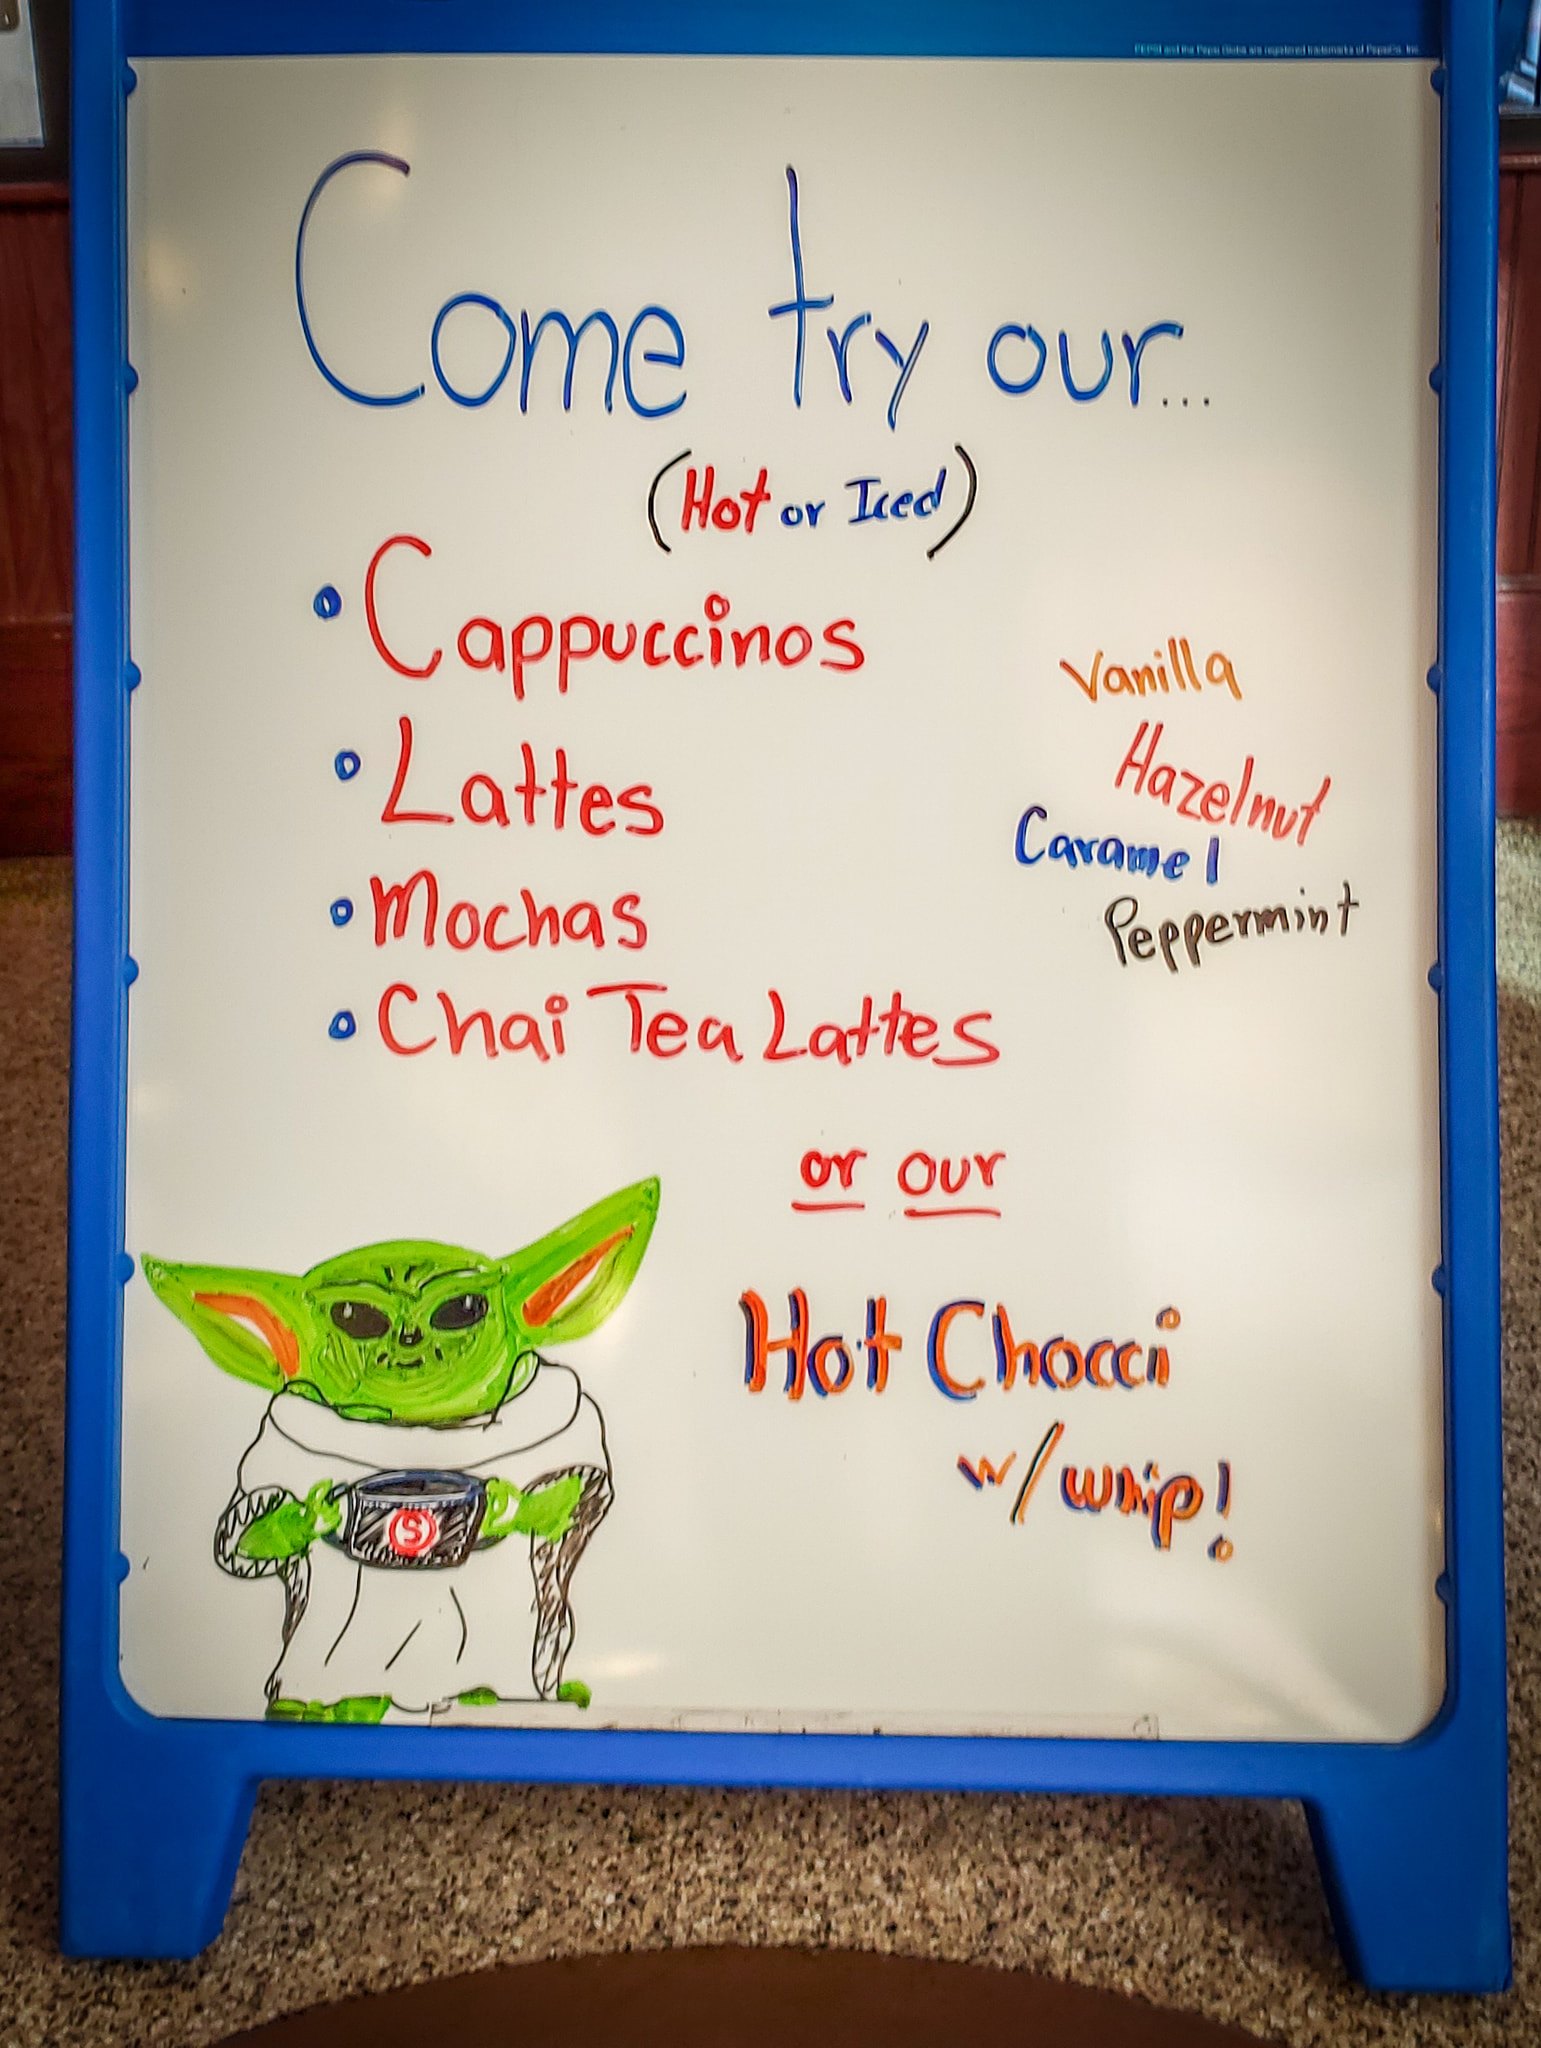 PEPSI and the Pepsi Globe are registered trademarks of PepsiCo, Inc.
Come try our...
(Hot or Iced)
• Cappuccinos
• Lattes
• Mochas
• Chai Tea Lattes
Vanilla
Hazelnut
Caramel
Peppermint
or our
Hot Chocci
w/ whip!
S